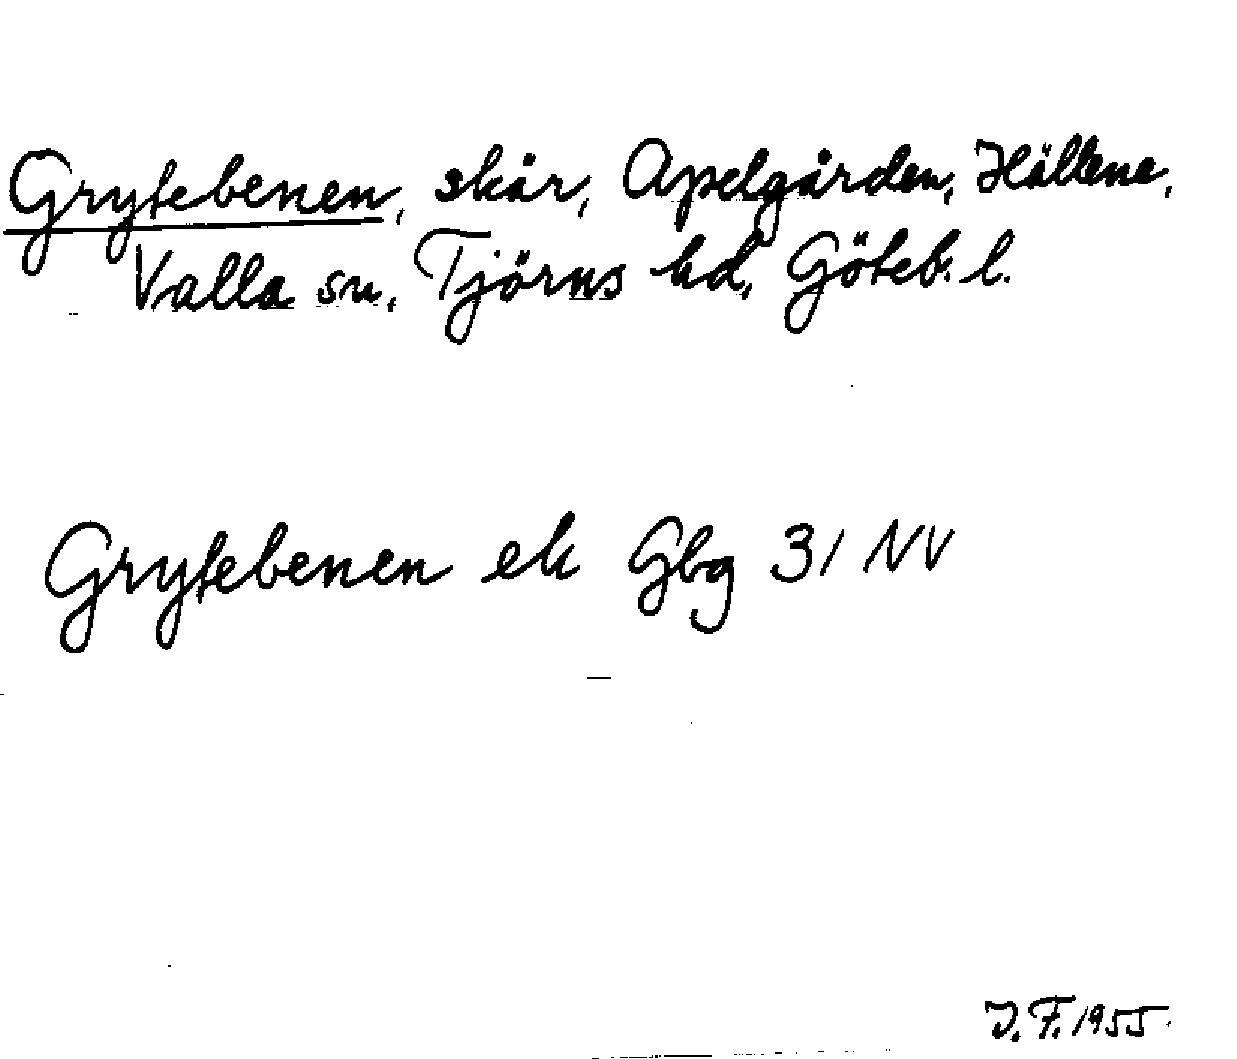 Grytebenen, skär, Apelgården, Hällene,
Valla sn, Tjörns hd, Göteb. l.
Grytebenen ek Gbg 31 NV
J. F. 1955.